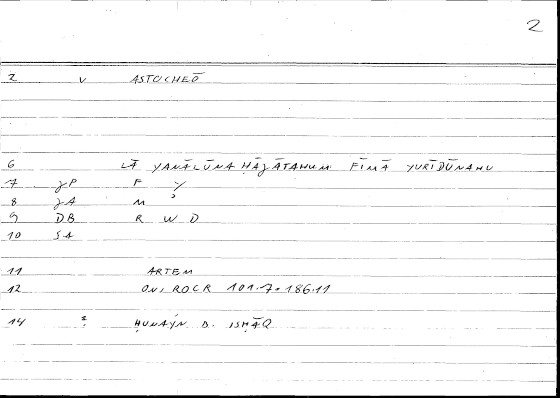 2
2 v ASTOCHEŌ
6 LĀ YANĀLŪNA ḤĀǧĀTAHUM FĪMĀ YURĪDŪNAHU
7 gP F Y
8 gA M ʾ
9 DB R W D
10 SA
11 ARTEM
12 ON, ROCR 101.7 • 186.11
14 ḤUNAYN B. ISḤĀQ